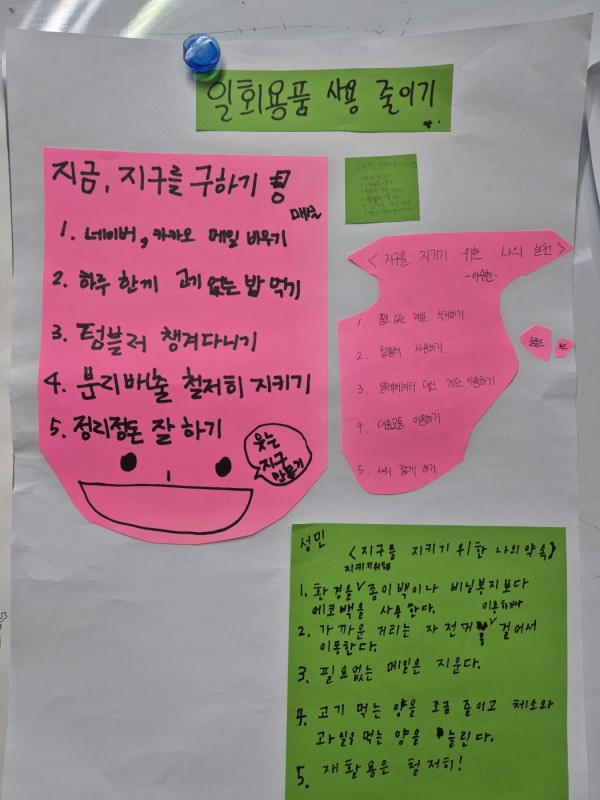 일회용품 사용 줄이기
지금, 지구를 구하기
매일
1. 네이버, 카카오 메일 비우기
2. 하루 한끼 고기 없는 밥 먹기
3. 텀블러 챙겨다니기
4. 분리배출 철저히 지키기
5. 정리정돈 잘 하기
웃는
지구
만들기
<지구를 지키기 위한 나의 실천>
1. 필요 없는 메일 삭제하기
2. 텀블러 사용하기
3. 엘레베이터 대신 계단 이용하기
4. 대중교통 이용하기
5. 샤워 짧게 하기
울릉도
독도
성민 <지구를 지키기 위한 나의 약속>
지키기위해
1. 환경을 ∨ 종이백이나 비닐봉지보다
에코백을 사용한다.
이용하거나
2. 가까운 거리는 자전거 ∨ 걸어서
이동한다.
3. 필요없는 메일은 지운다.
4. 고기 먹는 양을 조금 줄이고 채소와
과일을 먹는 양을 늘린다.
5. 재활용은 철저히!